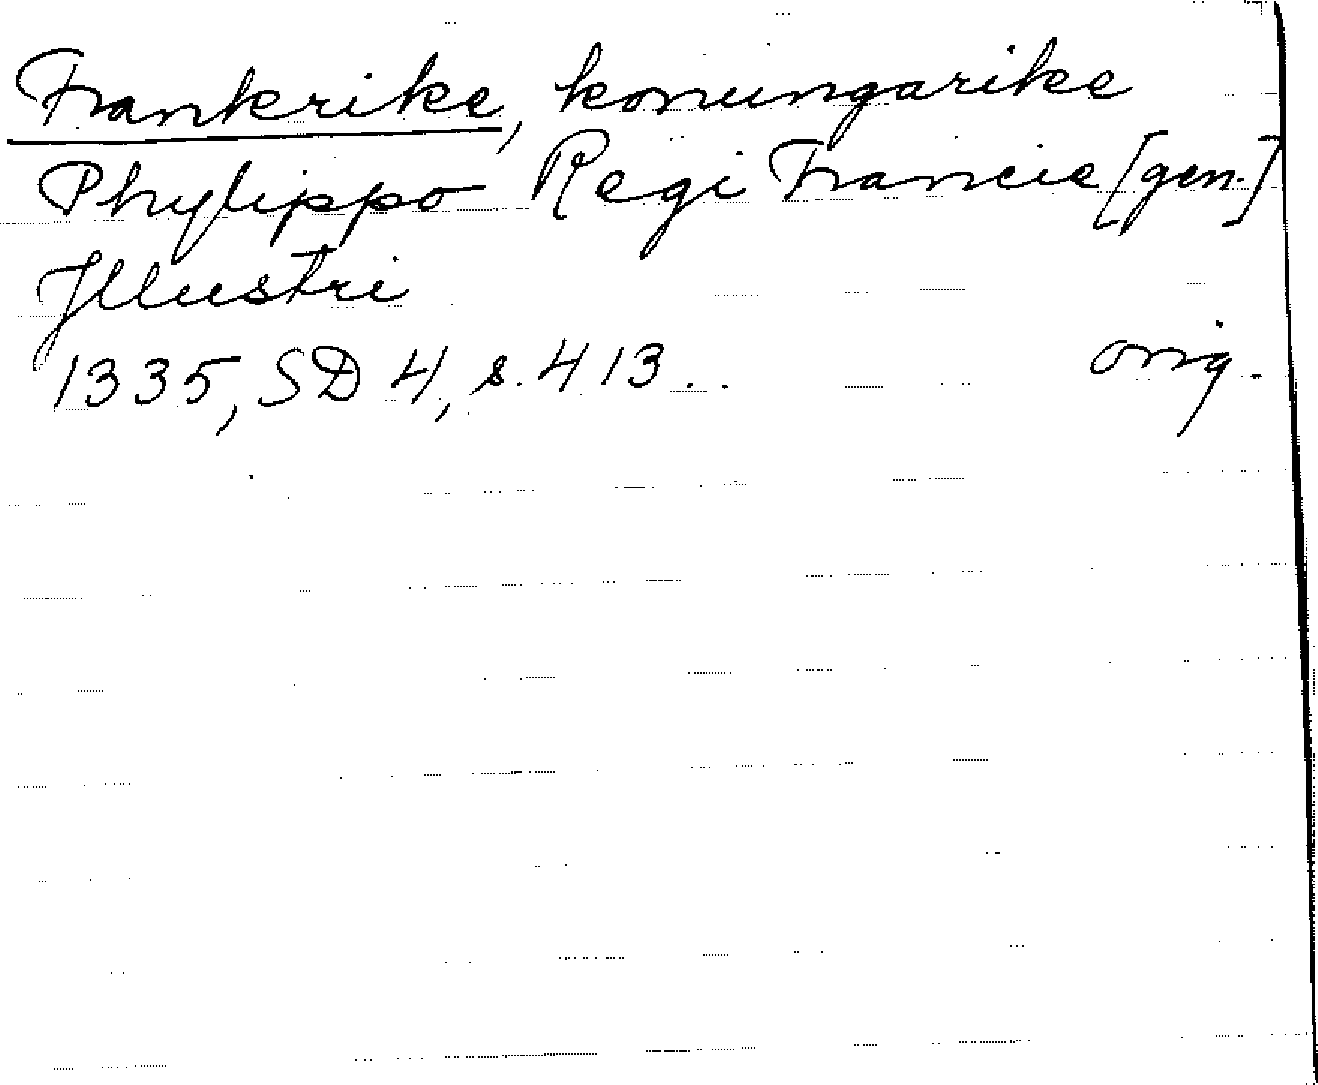 Frankrike, konungarike
Phylippo Regi Francie [gen.]
Jllustri
1335, SD 4, s. 413. orig.